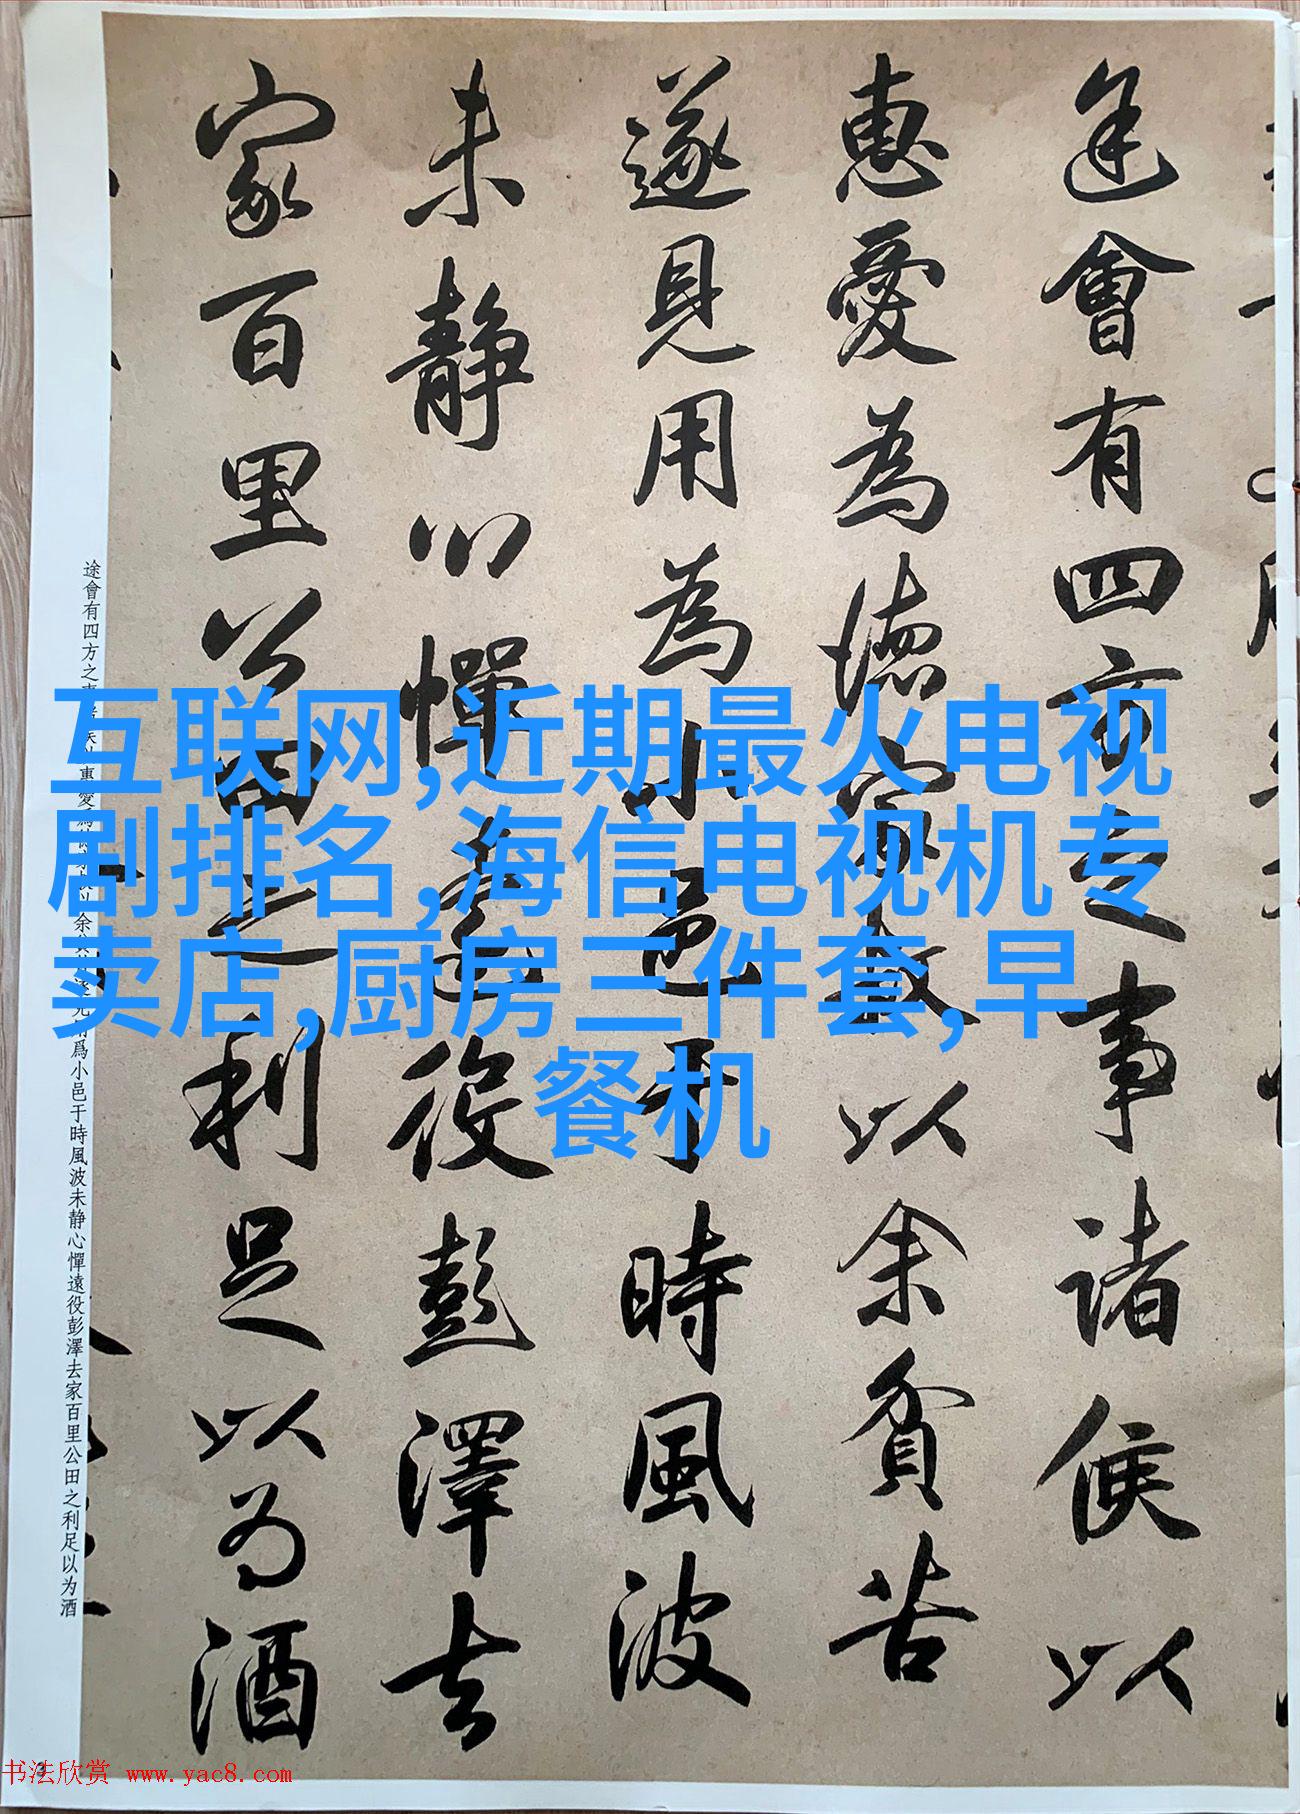 途會有四方之事諸侯以
惠愛為德家叔以余貧苦
遂見用為小邑于時風波
未静心憚遠役彭澤去
家百里公田之利足以為酒
互联网,近期最火电视
剧排名,海信电视机专
卖店,厨房三件套,早
餐机
途會有四方之事諸侯以惠愛爲德家叔以余貧苦遂見用爲小邑于時風波未静心憚遠役彭澤去家百里公田之利足以为酒
3
书法欣赏 www.yac8.com